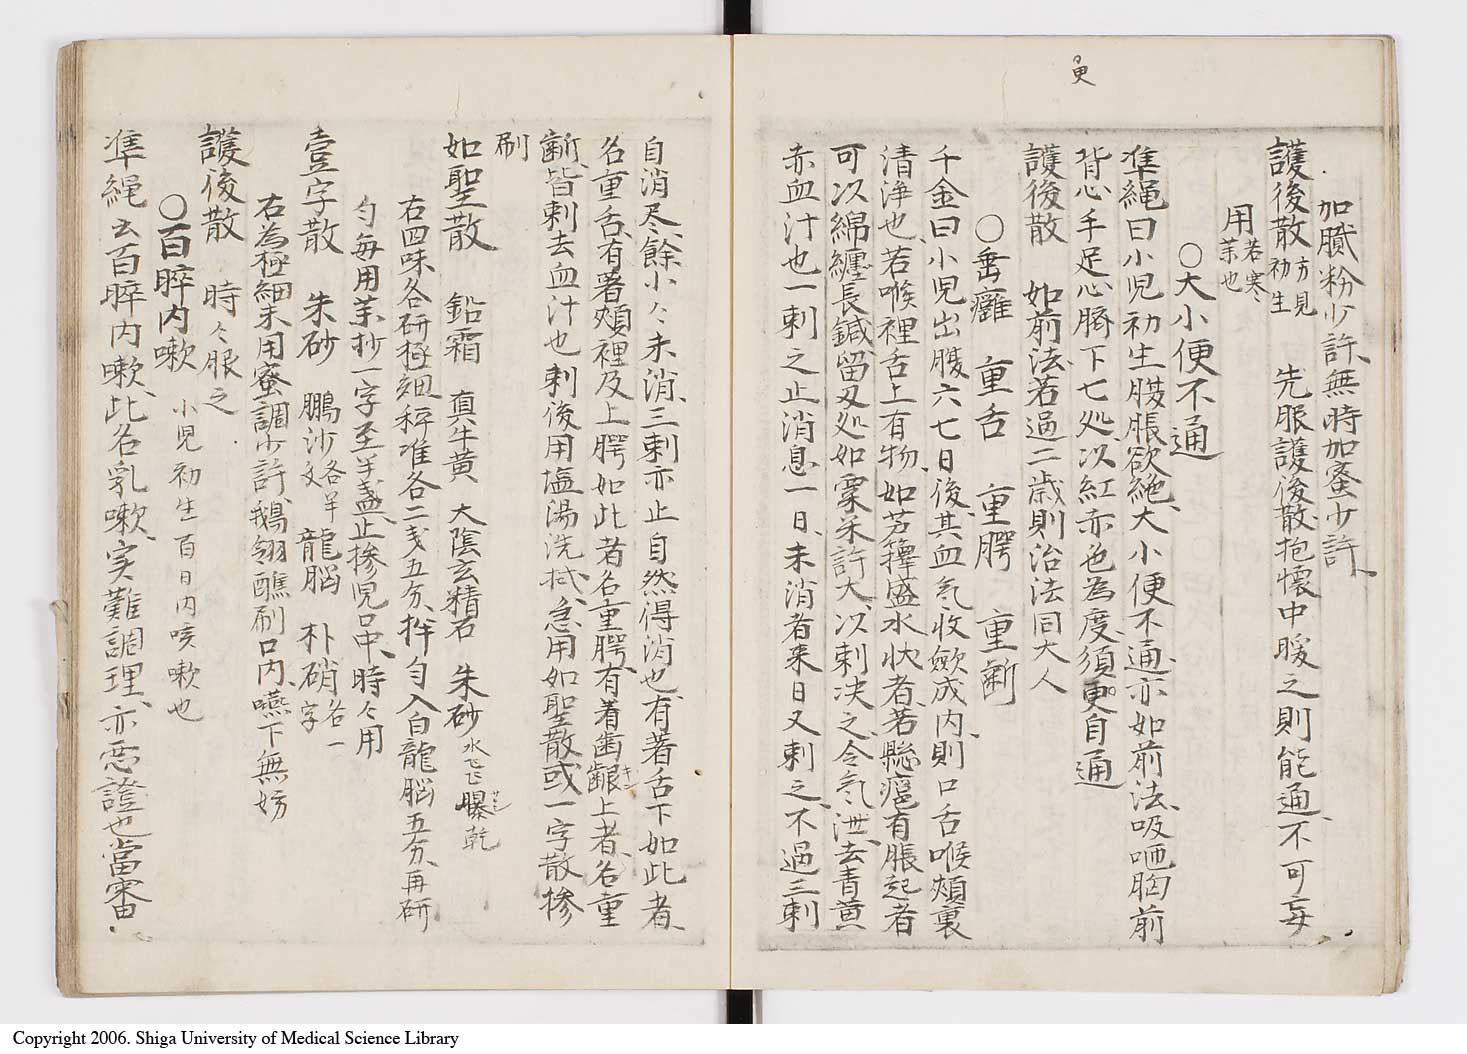 更
加膩粉少許、無時加蜜少許、
護後散 方見初生 先服護後散抱懷中暖之則能通、不可妄
用 若寒茱也
○大小便不通
準繩曰小児初生腹脹欲絶、大小便不通、亦如前法、吸咂胸前
背心手足心臍下七処、以紅赤色為度、須更自通
護後散 如前法、若過二歳則治法同大人
○垂癰 重舌 重腭 重齗
千金曰小児出腹六七日後、其血気收斂成内、則口舌喉頬裏
清浄也、若喉裡舌上有物、如芳籜盛水状者、若懸癰有脹起者
可以綿纏長鍼、留刃処如粟米許大、以刺决之、令気泄、去青黄
赤血汁也、一刺之止消息一日、未消者来日又刺之、不過三刺
自消尽、餘小々未消、三刺亦止自然得消也、有著舌下如此者、
名重舌、有著頬裡及上腭如此者名重腭、有着歯齦上者、名重
齗、皆刺去血汁也、刺後用塩湯洗拭、急用如聖散或一字散摻
刷
如聖散 鉛霜 真牛黄 大陰玄精石 朱砂 水飞飞曝乾
右四味各研極細、秤准各二戔五分、拌匀入白龍脳五分、再研
匀毎用羊抄一字至半盞、止摻児口中、時々用
壹字散 朱砂 鵬沙 各半文 龍脳 朴硝 各一字
右為極細末用蜜調少許、鵝翎蘸刷口内、嚥下無妨
護後散 時々服之
○百晬内嗽 小児初生百日内咳嗽也
準繩云百晬内嗽、此名乳嗽、実難調理、亦悪證也、當審
Copyright 2006. Shiga University of Medical Science Library